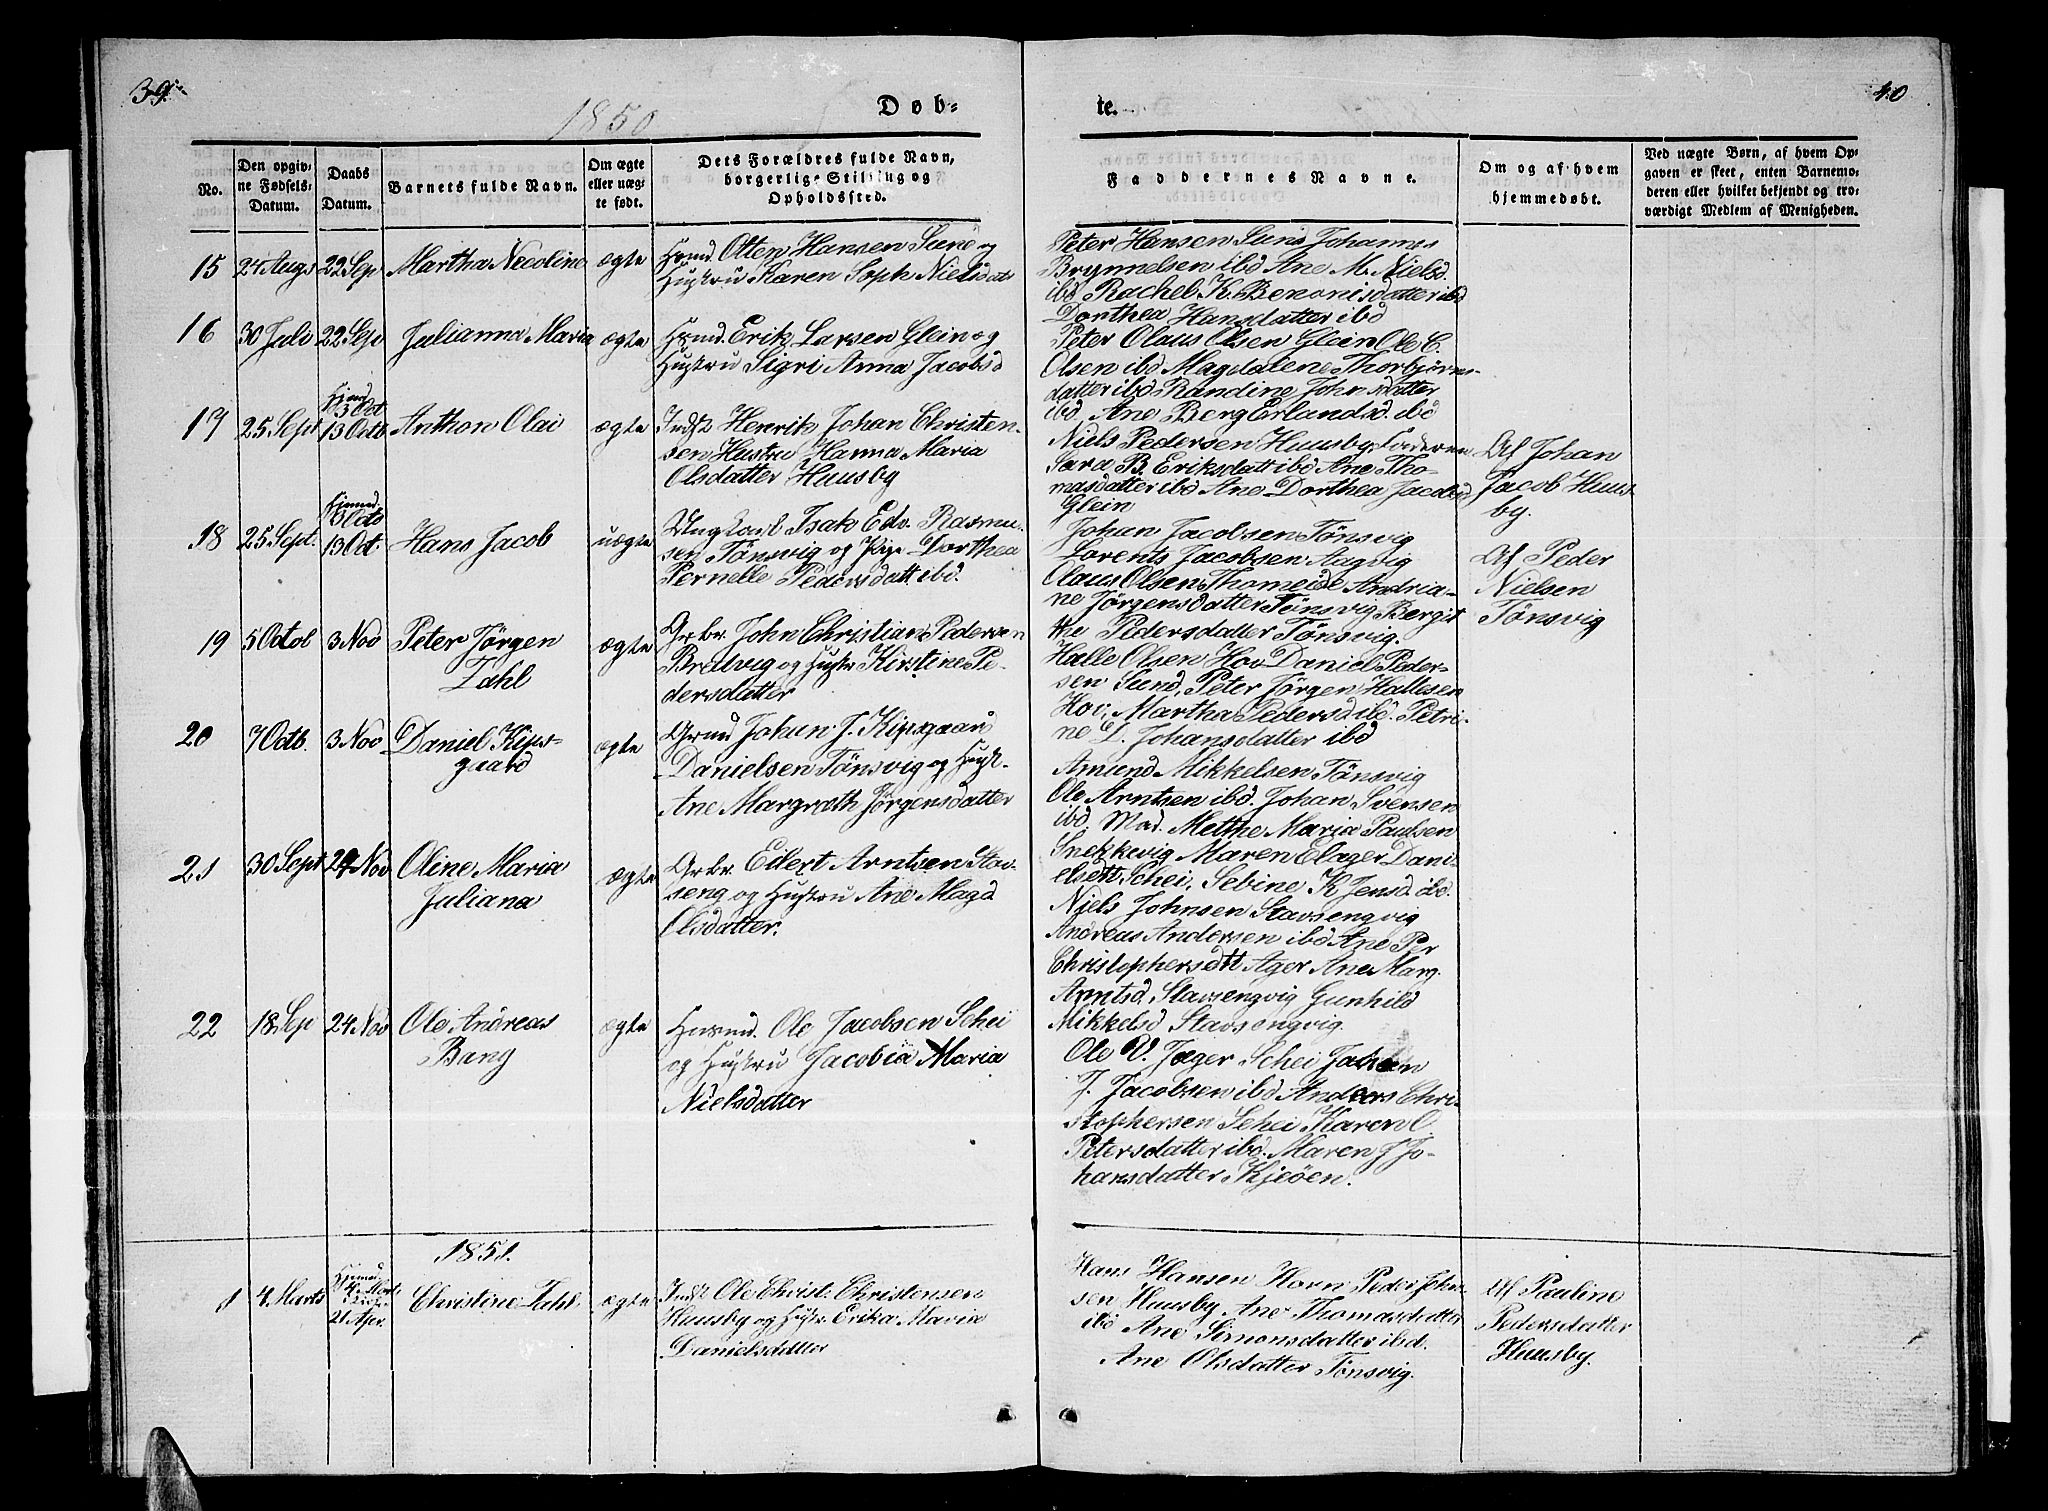 39.
40
1850
Døb-
te.
No.
Den opgiv-
ne Fødsels-
Datum.
Daabs
Datum.
Barnets fulde Navn.
Om ægte
eller uæg-
te født.
Dets Forældres fulde Navn,
borgerlige Stilling og
Opholdssted.
Faddernes Navne.
Om og af hvem
hjemmedøbt.
Ved uægte Børn, af hvem Op-
gaven er skeet, enten Barnemo-
deren eller hvilket bekjendt og tro-
værdigt Medlem af Menigheden.
15 24 Augs 22 Sep Martha Necoline ægte
Otten Hansen Sunö og
Hustru Karen Soph Nielsdat
Peter Hansen Sunö Johannes
Brynnelsen ibd Ane M. Nielsd.
ibd Rachel K. Benonisdatter ibd
Dorthea Hansdatter ibd
16 30 Juli 22 Sep Julianna Maria ægte
Erik Larsen Glein og
Hustru Sigri Anna Jacobsd
Peter Olaus Olsen Glein Ole C.
Olsen ibd Magdalene Thorbjörns-
datter ibd Randine Johnsdatter
ibd, Ane Berg Erlandsd. ibd
17 25 Sept
3 Oct
13 Octb
Anthon Olai ægte
Indst Henrik Johan Christen-
sen Hustru Hanna Maria
Olsdatter Huusby
Niels Pedersen Huusby, Faderen
Sara B. Eriksdatt ibd Ane Tho-
masdatter ibd Ane Dorthea Jacobsd
Glein
Af Johan
Jacob Huus-
by.
18 25 Sept.
Hjemmed
3 Octb
13 Oct.
Hans Jacob uægte
Ungkarl Isak Edv. Rasmu-
sen Tönsvig og Pige Dorthea
Pernelle Pedersdatt ibd.
Johan Jacobsen Tönsvig
Lorents Jacobsen Aagvig
Olaus Olsen Thomeide Andria-
ne Jörgensdatter Tönsvig Bergit
the Pedersdatter Tönsvig.
Af Peder
Nielsen
Tönsvig
19 5 Octob 3 Nov Peter Jörgen
Zahl
ægte
Grbr. John Christian Pedersen
Bredvig og Hustr Kirstine Pe-
dersdatter
Halle Olsen Hov Daniel Peder-
sen Sund, Peter Jörgen Hallesen
Hov, Martha Pedersd ibd. Petri-
ne L. Johansdatter ibd
20 7 Octb. 3 Nov Daniel Kips-
gaard
ægte
Johan J. Kipsgaard
Danielsen Tönsvig og Hust.
Ane Margreth Jörgensdatter
Amund Mikkelsen Tönsvig
Ole Arntsen ibd. Johan Svensen
ibd, Mad. Methe Maria Paulsen
Snekkevig Maren Elager Dani-
elsdtt Schei, Sebine K Jensd. ibd.
21 30 Sept 24 Nov Oline Maria
Juliana
ægte
Grbr. Eilert Arntsen Stav-
seng og Hustru Ane Magd
Olsdatter.
Niels Johnsen Stavsengvig
Andreas Andersen ibd Ane Per
Christophersdtt Ager Ane Marg.
Arntsd, Stavsengvig Gunhild
Mikkelsd Stavsengvig.
22 18 Sep 24 Nov Ole Andreas
Bang
ægte
Husmd. Ole Jacobsen Schei
og Hustru Jacobia Maria
Nielsdatter
Ole V. Jæger Schei Johan
J. Jacobsen ibd Anders Chri-
stophersen Schei Karen O
Petersdatter ibd. Maren J Jo-
hansdatter Skjeöen.
1851.
1 4 Marts
Hjemed
21 Apr.
Christine Zahl ægte
Indst Ole Christ. Christensen
Huusby og Hustr. Erika Maria
Danielsdatter
Hans Hansen Horn Peder John-
sen Huusby Ane Thomasdatter
ibd Ane Simonsdatter ibd.
Ane Olsdatter Tönsvig.
Af Pauline
Pedersdatter
Huusby.